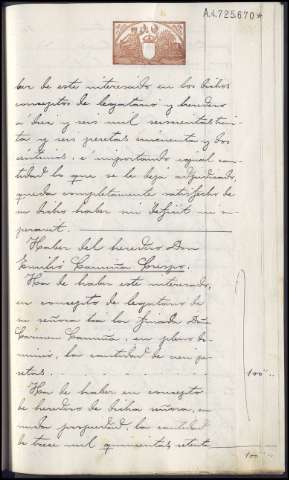 A.1.725.670*
ber de este interesado en los dichos
conceptos de legatario y heredero
á diez y seis mil seiscientas trein
ta y seis pesetas cincuenta y dos
céntimos, é importando igual can-
tidad lo que se le deja adjudicado,
queda completamente satisfecho de
su dicho haber sin déficit ni
Haber del heredero Don
Emilio Camiña Crespo.
Ha de haber este interesado,
en concepto de legatario de
su señora tia la finada Dña
Carmen Camiña, en pleno do-
minio, la cantidad de cien pe-
setas
100
Ha de haber en concepto
de heredero de dicha señora, en
nuda propiedad, la cantidad
de trece mil quinientas setent
100